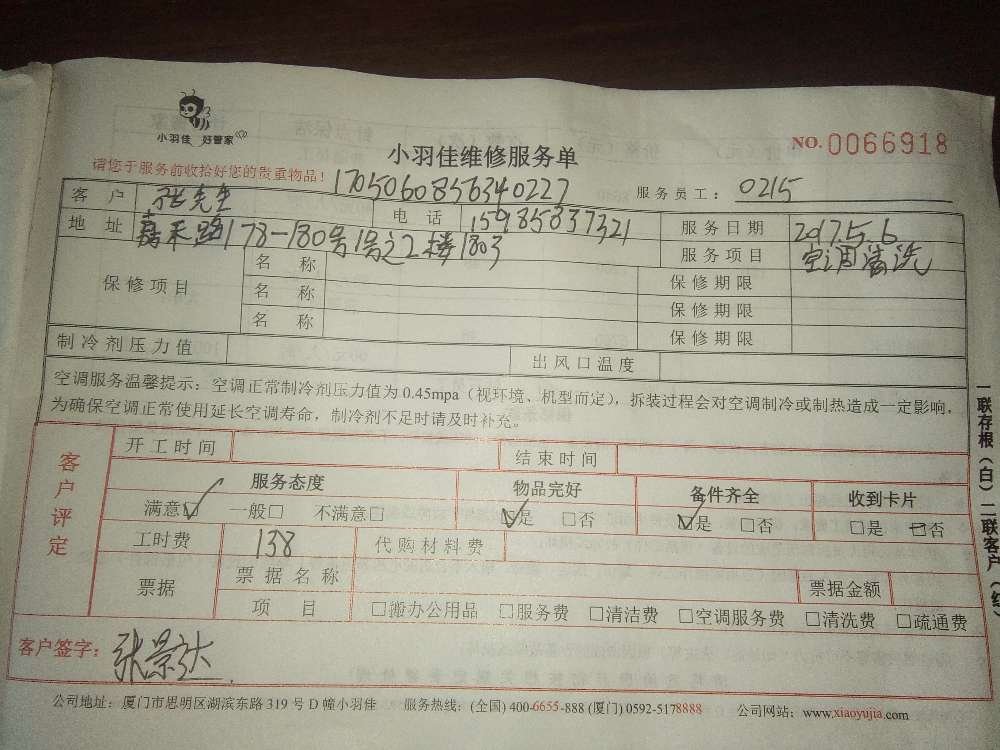 小羽佳 好管家
小羽佳维修服务单
NO.0066918
请您于服务前收拾好您的贵重物品!
1705060856340227
服务员工: 0215
客户 张先生 电话 15985837321 服务日期 2017.5.6
地址 嘉禾路178-180号1号之2楼1803 服务项目 空调清洗
保修项目 名称 保修期限
名称 保修期限
名称 保修期限
制冷剂压力值 出风口温度
空调服务温馨提示:空调正常制冷剂压力值为0.45mpa(视环境、机型而定),拆装过程会对空调制冷或制热造成一定影响,
为确保空调正常使用延长空调寿命,制冷剂不足时请及时补充。
客户评定 开工时间 结束时间
服务态度 物品完好 备件齐全 收到卡片
满意□ 一般□ 不满意□ □是 □否 □是 □否 □是 □否
工时费 138 代购材料费
票据 票据名称 票据金额
项目 □搬办公用品 □服务费 □清洁费 □空调服务费 □清洗费 □疏通费
客户签字: 张景达
公司地址:厦门市思明区湖滨东路319号D幢小羽佳 服务热线:(全国)400-6655-888 (厦门)0592-5178888 公司网站:www.xiaoyujia.com
一联存根(白)二联客户(红